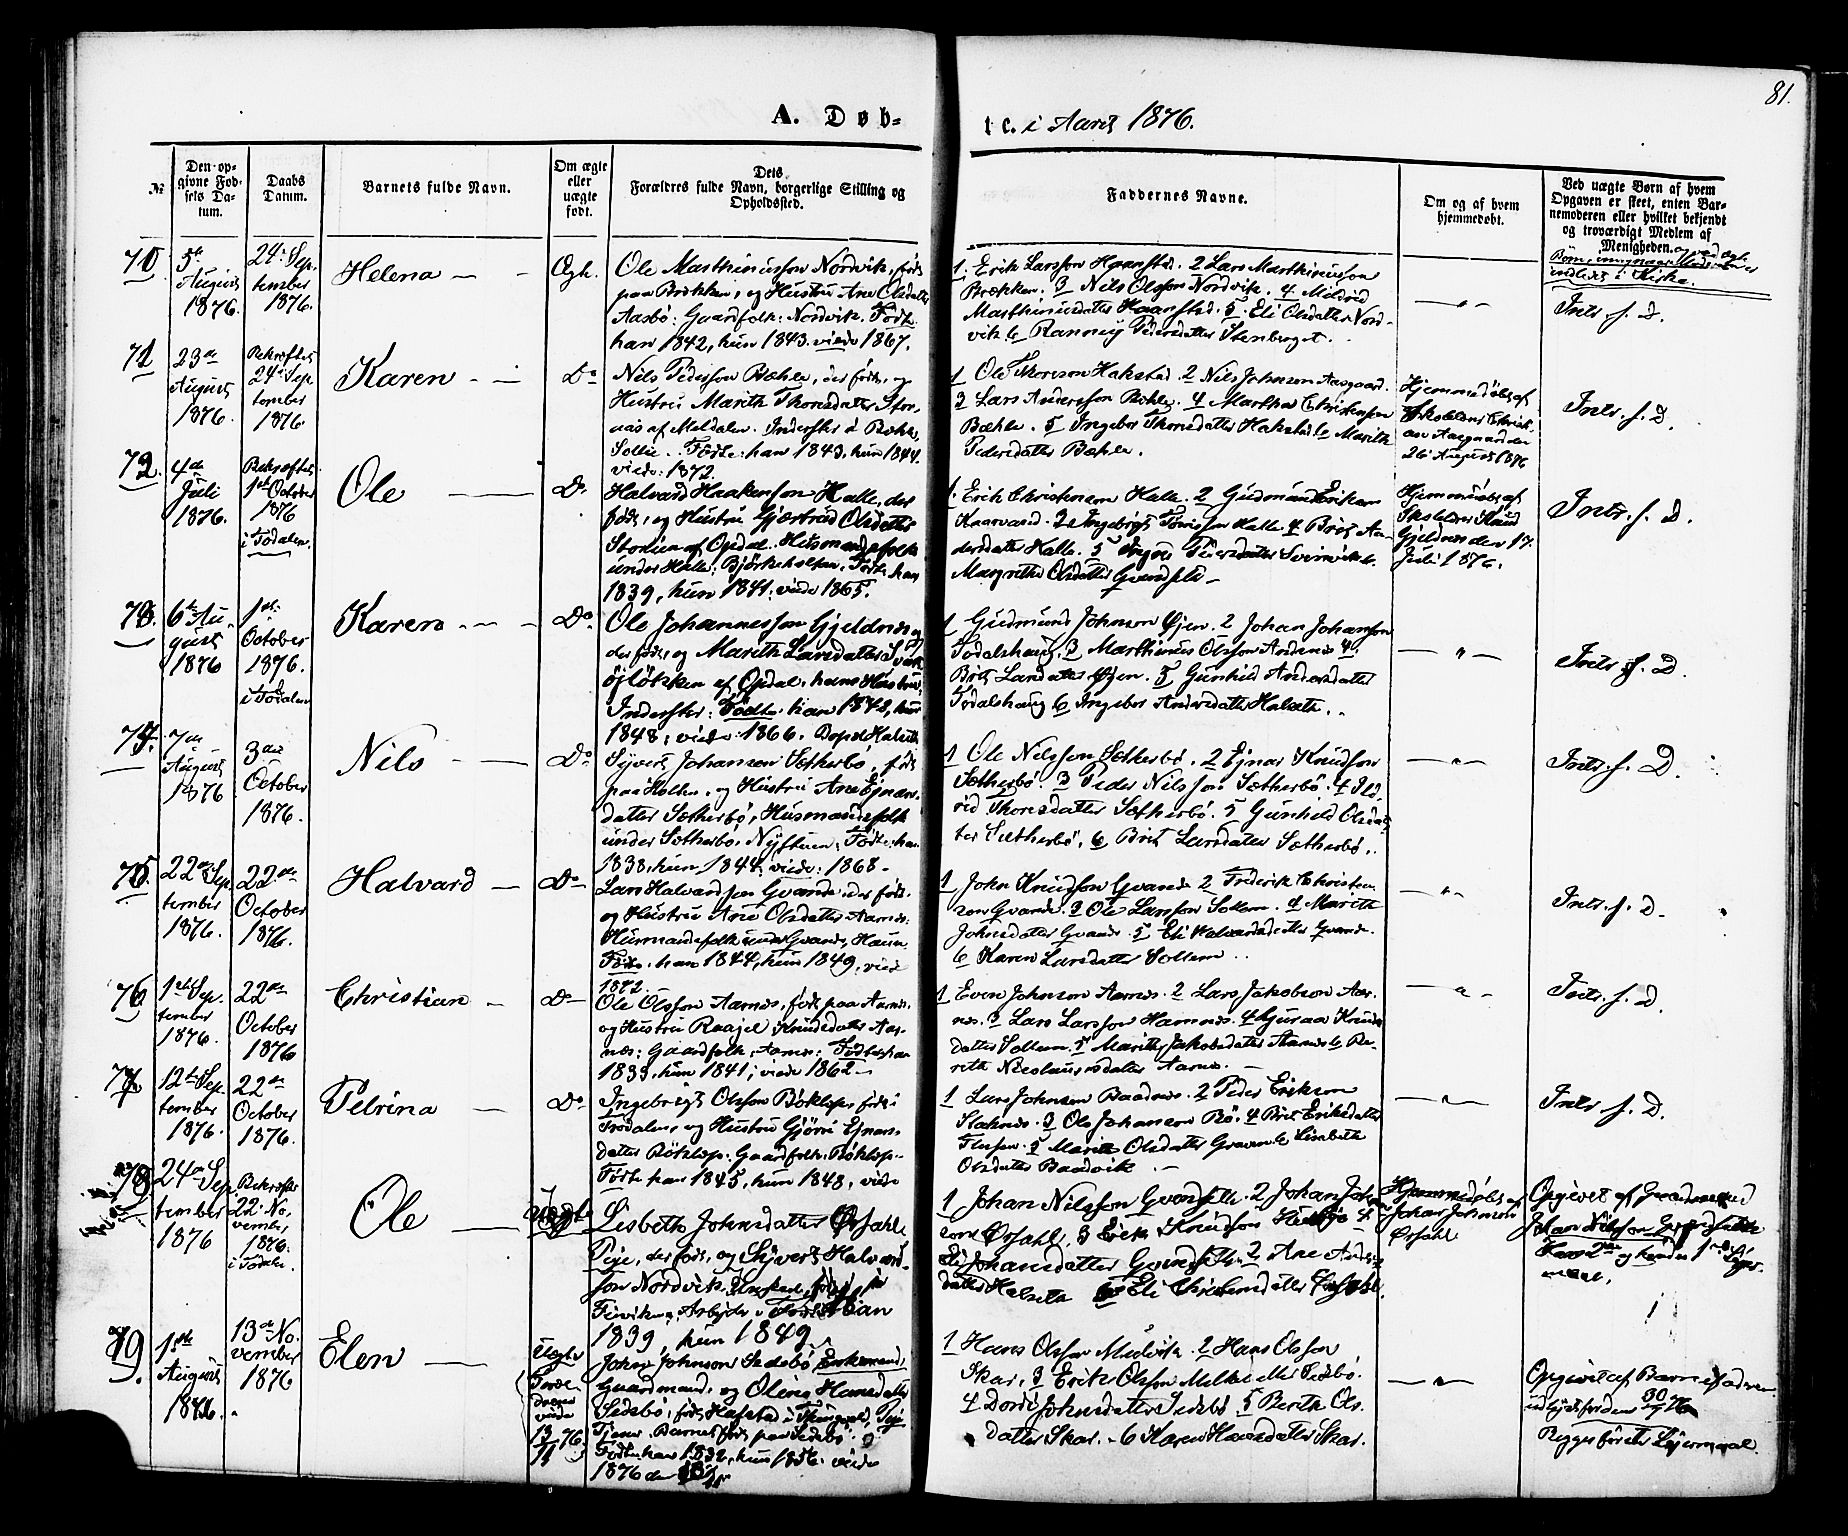 81.
A. Døb-
te. i Aaret 1876.
№
Den op-
givne Fød-
sels Da-
tum.
Daabs
Datum.
Barnets fulde Navn.
Om ægte
eller
uægte
født.
Dets
Forældres fulde Navn, borgerlige Stilling og
Opholdssted.
Faddernes Navne.
Om og af hvem
hjemmedøbt.
Ved uægte Børn af hvem
Opgaven er skeet, enten Bar-
nemoderen eller hvilket bekjendt
og troværdigt Medlem af
Menigheden.
70
5te
August
1876.
24. Sep.
tember
1876.
Helena
Ægte.
Ole Marthinussøn Nordvik, født
paa Brækken, og Hustru Ane Olsdatter
Aasbø: Gaardfolk: Nordvik. Født:
han 1842, hun 1843. viede 1867.
1. Erik Larssøn Haanstad. 2 Lars Marthinussøn
Brækken. 3 Nils Olssøn Nordvik. 4 Mildrid
Marthinusdatter Haanstad. 5. Eli Olsdatter Nord-
vik 6 Rannug Pedersdatter Stenberget.
Intr. f. D.
71
23de
August
1876.
Bekræftet
24. Sep
tember
1876.
Karen
Do
Nils Pederssøn Bæhle, der født, og
Hustru Marith Thoresdatter Stor-
aas af Meldalen. Inderster i Bæhle,
Født: han 1843, hun 1844.
viede: 1872.
1 Ole Thoresøn Hakstad. 2 Nils Johnsøn Aasgaard.
3 Lars Anderssøn Bæhle. 4 Martha Christensen
Bæhle. 5 Ingebor Thoresdatter Hakstad 6 Marith
Pedersdatter Bæhle.
Hjemmedøbt af
Skolelærer Christ.
Aasgaard den
26 August 1876
Intr. f. D.
72
4de
Juli
1876.
Bekræftet
1ste October
1876
i Todalen.
Ole
Do
Halvard Haakenssøn Halle, der
født, og Hustru Gjertrud Olsdatter
Storlien af Opdal. Husmandsfolk
under Halle: Bjørkeholten. Født: han
1839, hun 1841: viede 1865.
1. Erik Christensøn Halle. 2 Gudmund Eriksøn
Kaarvand. 3 Ingebrigt Halle. 4 Brit An-
dersdatter Halle. 5 Pedersdatter Svinvik 6.
Margrethe Olsdatter
Hjemmedøbt af
Skolelærer Knud
Gjeldnes den 17.
Juli 1876.
Intr. f. D.
73
6te Au-
gust
1876
1ste
October
1876.
i Todalen
Karen
Do
Ole Johannessøn Gjeldnes,
der født, og Marith Larsdatter
af Opdal, hans Hustru,
Inderster: Født: han 1842, hun
1848; viede 1866. Bopæl Halsetc
1 Gudmund Johnsøn Øjen. 2 Johan Johansøn
Todalshaug. 3 Marthinus Olssøn Andsnes 4.
Brit Larsdatter Øjen. 5 Gunhild Andersdatter
Todalshaug 6 Ingebor Andersdatter Halseth.
Intr. f. D.
74.
7de
August
1876
3die
October
1876.
Nils
Do
Sjvert Johansøn Sætherbø, født
paa Holten, og Hustru Ane Ejnars-
datter Sætherbø, Husmandsfolk
under Sætherbø, Nystuen, Født: han
1838, hun 1844; viede: 1868.
1 Ole Nilssøn Sætherbø. 2 Ejnar Knudsøn
Sætherbø. 3 Peder Nilssøn Sætherbø. 4 Ild-
rid Thoresdatter Sætherbø. 5 Gunhild Olsdat-
ter Sætherbø, 6 Brit Larsdatter Sætherbø.
Intr. f. D.
75.
22de Sep
tember
1876.
22de
October
1876.
Halvard
Do
Lars Halvardssøn Gvande, der født.
og Hustru Ane Olsdatter Aarnes.
Husmandsfolk under Gvande, Haun
Født: han 1844, hun 1849, viede
1872.
1 John Knudsøn Gvande. 2 Frederik Christen
søn Gvande. 3 Ole Larssøn Sollem. 4 Marith
Johnsdatter Gvande. 5 Eli Halvardsdatter Gvande.
6 Karen Larsdatter Sollem
Intr. f. D.
76
1ste Sep.
tember
1876.
22de
October
1876
Christian
Do
Ole Olssøn Aarnes, født paa Aarnes.
og Hustru Raajel Knudsdatter Aar-
nes: Gaardfolk, Aarnes: Født: han
1833, hun 1841; viede 1862
1 Even Johnsøn Aarnes. 2 Lars Jakobsøn Aar-
nes. 3 Lars Larssøn Hamnes. 4 Guraa Knuds
datter Sollem. 5 Marith Jakobsdatter Aarnes 6 Be-
reth Nicolausdatter Aarnes.
Intr. f. D.
77
12te Sep
tember
1876.
22de
October
1876.
Petrina
Do
Ingebrigt Olssøn Bøklep, født i
Todalen, og Hustru Gjøri Ejnars-
datter Bøklep. Gaardfolk: Bøklep.
Født: han 1845, hun 1848, viede
1 Lars Johnsøn Baadnes. 2 Peder Eriksøn
Staknes. 3 Ole Johansøn Bø. 4 Brit Eriksdatter
5 Marith Olsdatter 6 Lisabeth
Olsdatter Baadvik
Intr. f. D.
78
24de Sep
tember
1876
Bekræftet
22. No-
vember
1876.
i Todalen.
Ole
Uægte
Lisbeth Johnsdatter Ørsahl
Pige, der født, og Sjvert Halvard-
søn Nordvik, Ungkarl, født paa
Arbejder. Født: Han
1839 hun 1849
1 Johan Nilssøn 2 Johan Johan
søn Ørsahl, 3 Erik Knudsøn 4
Eli Johansdatter Ane Anders
datter Halseth 6 Eli Christensdatter Ørsahl.
Hjemmedøbt af
Johan Johnsøn
Ørsahl
Opgivet af Gaardmand
Johan Nilssøn
Hans 2det og hendes 1ste Lejer-
maal.
79.
1ste
August
1876.
13de No
vember
1876
Elen
Uægte
viede
13/11 76
John Johnsøn Sedsbø, Enkemand,
Gaardmand, og Olina Hansdatter
Sedsbø, født Hafstad i Pige
Tjener. Barnet født paa Sedsbø.
Født: han 1832, hun 1856. viede
1876 den 13/11
1 Hans Olssøn Mulvik. 2 Hans Olssøn
Skar. 3 Erik Olssøn Sedsbø.
4 Dordi Johnsdatter Sedsbø 5 Berith Ols-
datter Skar. 6 Karen Hansdatter Skar.
Opgivet af Barnefaderen
30/7 76
Begges første Lejermaal.